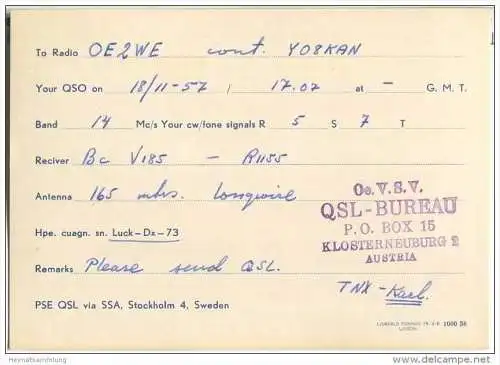 To Radio OE2WE cont. YO8KAN
Your QSO on 18/11-57 / 17.02 at – G. M. T.
Band 14 Mc/s Your cw/fone signals R 5 S 7 T
Reciver Bc V185 – R1155
Antenna 165 mtrs. Longwire
Oe. V. S. V.
QSL-BUREAU
P. O. BOX 15
KLOSTERNEUBURG 2
AUSTRIA
Hpe. cuagn. sn. Luck-Dx-73
Remarks Please send QSL.
TNX-Karl.
PSE QSL via SSA, Stockholm 4, Sweden
1000 58
Heimatsammlung
www.delcampe.net